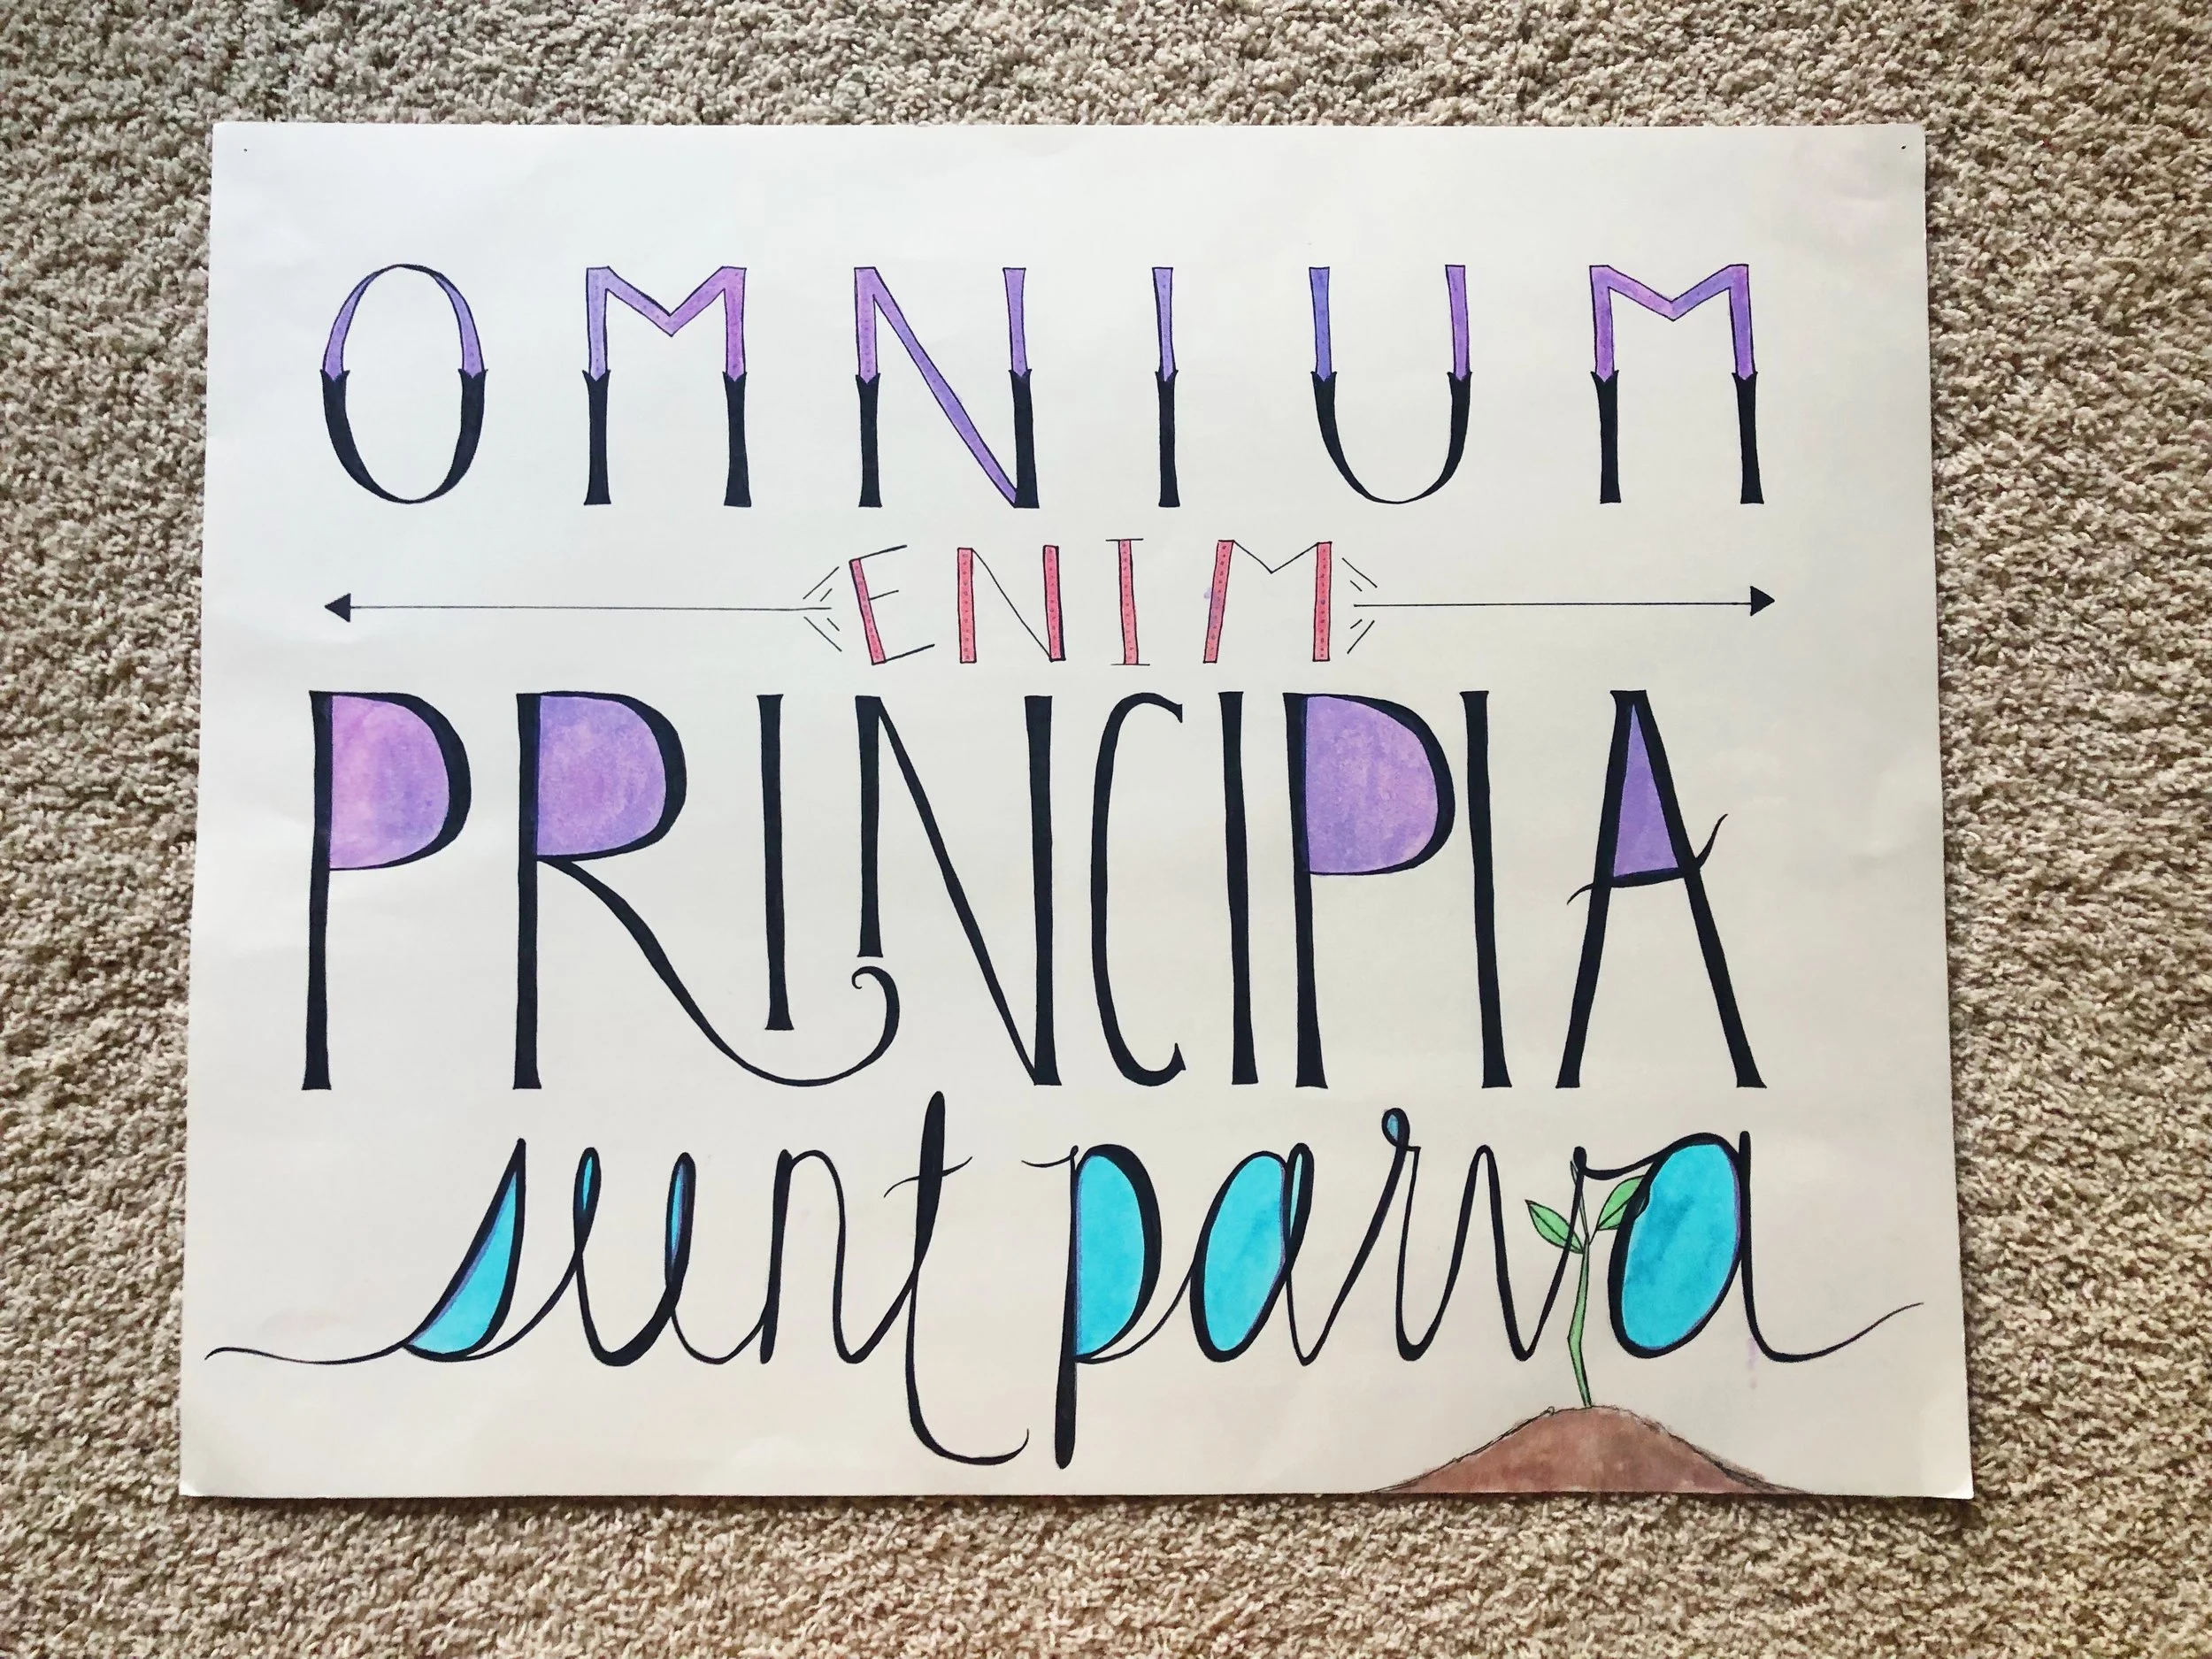 OMNIUM
ENIM
PRINCIPIA
sunt parva